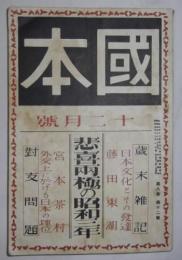 國本
十二月號
歲末雜記
日本文化とその發達
藤田東湖
悲喜兩極の昭和二年
宮本茶村
外交上に於ける日本の地位
對支問題